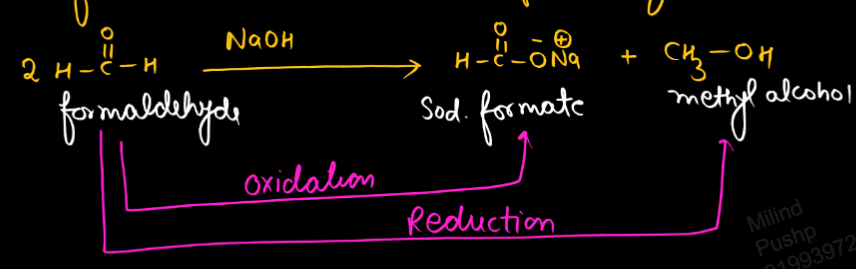 O O
2 H-C-H NaOH H-C-O⁻Na⊕ + CH₃-OH
formaldehyde Sod. formate methyl alcohol
Oxidation
Reduction
Milind
Pushp